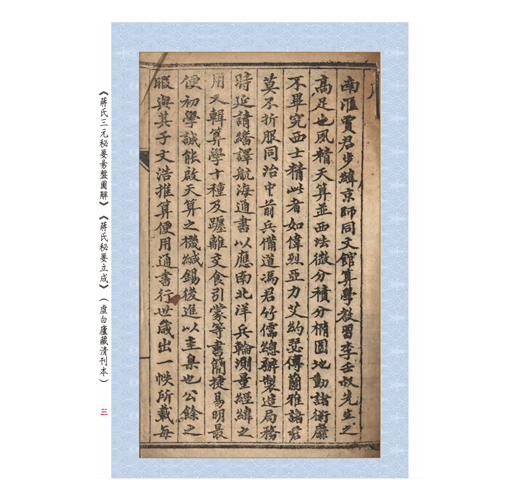 南滙賈君步緯京師同文館算學教習李壬叔先生之
高足也風精天算並西法微分積分橢圓地動諸術靡
不畢究西士精此者如偉烈亞力艾約瑟傅蘭雅諸君
莫不折服同治中前兵備道馮君竹儒總辦製造局務
時延請繙譯航海通書以應南北洋兵輪測量經緯之
用又輯算學十種及躔離交食引蒙等書簡捷易明最
便初學誠能啟天算之機緘錫後進以圭臬也公餘之
暇與其子文浩推算便用通書行世歲出一帙所載每
《蔣氏三元秘要易盤圖解》《蔣氏秘要立成》（虛白廬藏清刊本）
三